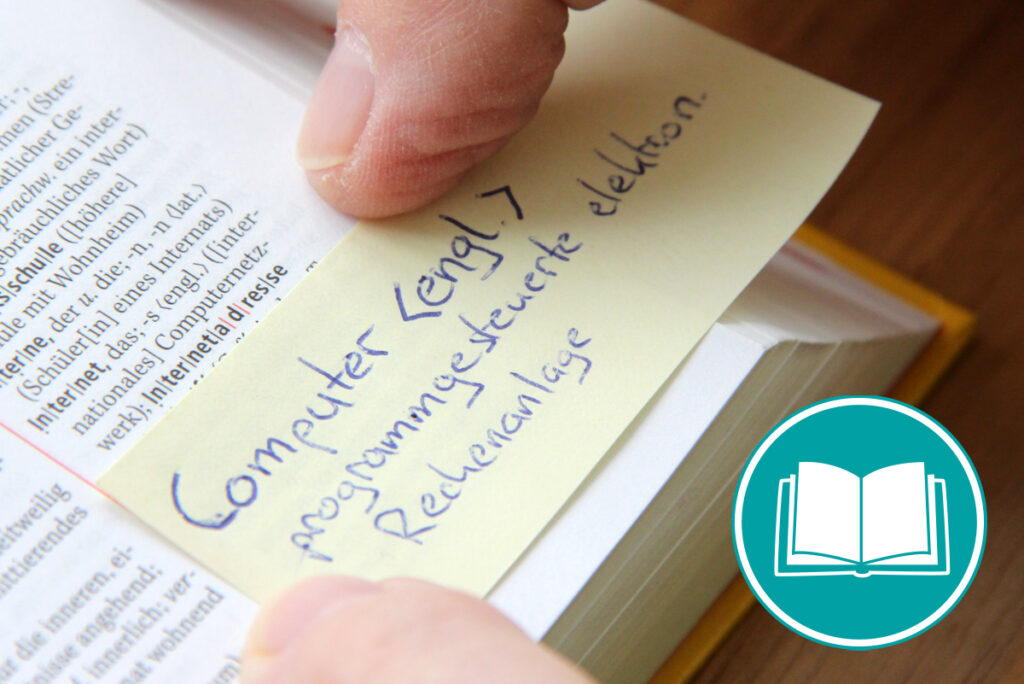 (Stre-
Ge-
ein inter-
gebräuchliches Wort)
([höhere]
mit Wohnheim)
der u. die; -n, -n ⟨lat.⟩
(Schüler[in] eines Internats)
In|ter|net, das; -s ⟨engl.⟩ ([inter-
nationales] Computernetz-
werk); In|ter|net|ad|res|se
die inneren, ei-
angehend;
innerlich; ver-
wohnend
Computer <engl.>
programmgesteuerte elektron.
Rechenanlage